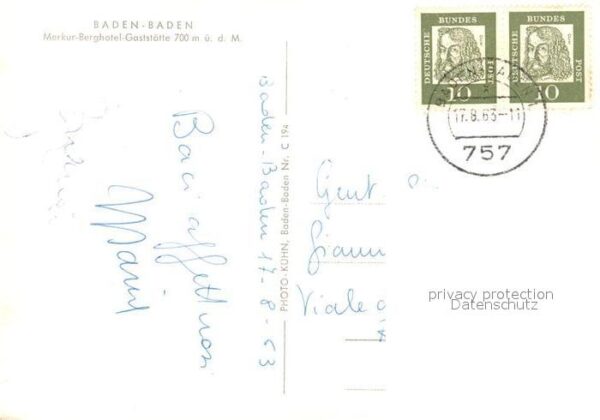 BADEN-BADEN
Merkur-Berghotel-Gaststätte 700 m ü. d. M.
Baci affettuosi
Baden-Baden 17-8-63
PHOTO-KÜHN, Baden-Baden Nr. C 194
DEUTSCHE BUNDESPOST
10
DEUTSCHE BUNDESPOST
10
BADEN-BADEN 1
17.8.63-11
757
Gent
Viale
privacy protection
Datenschutz